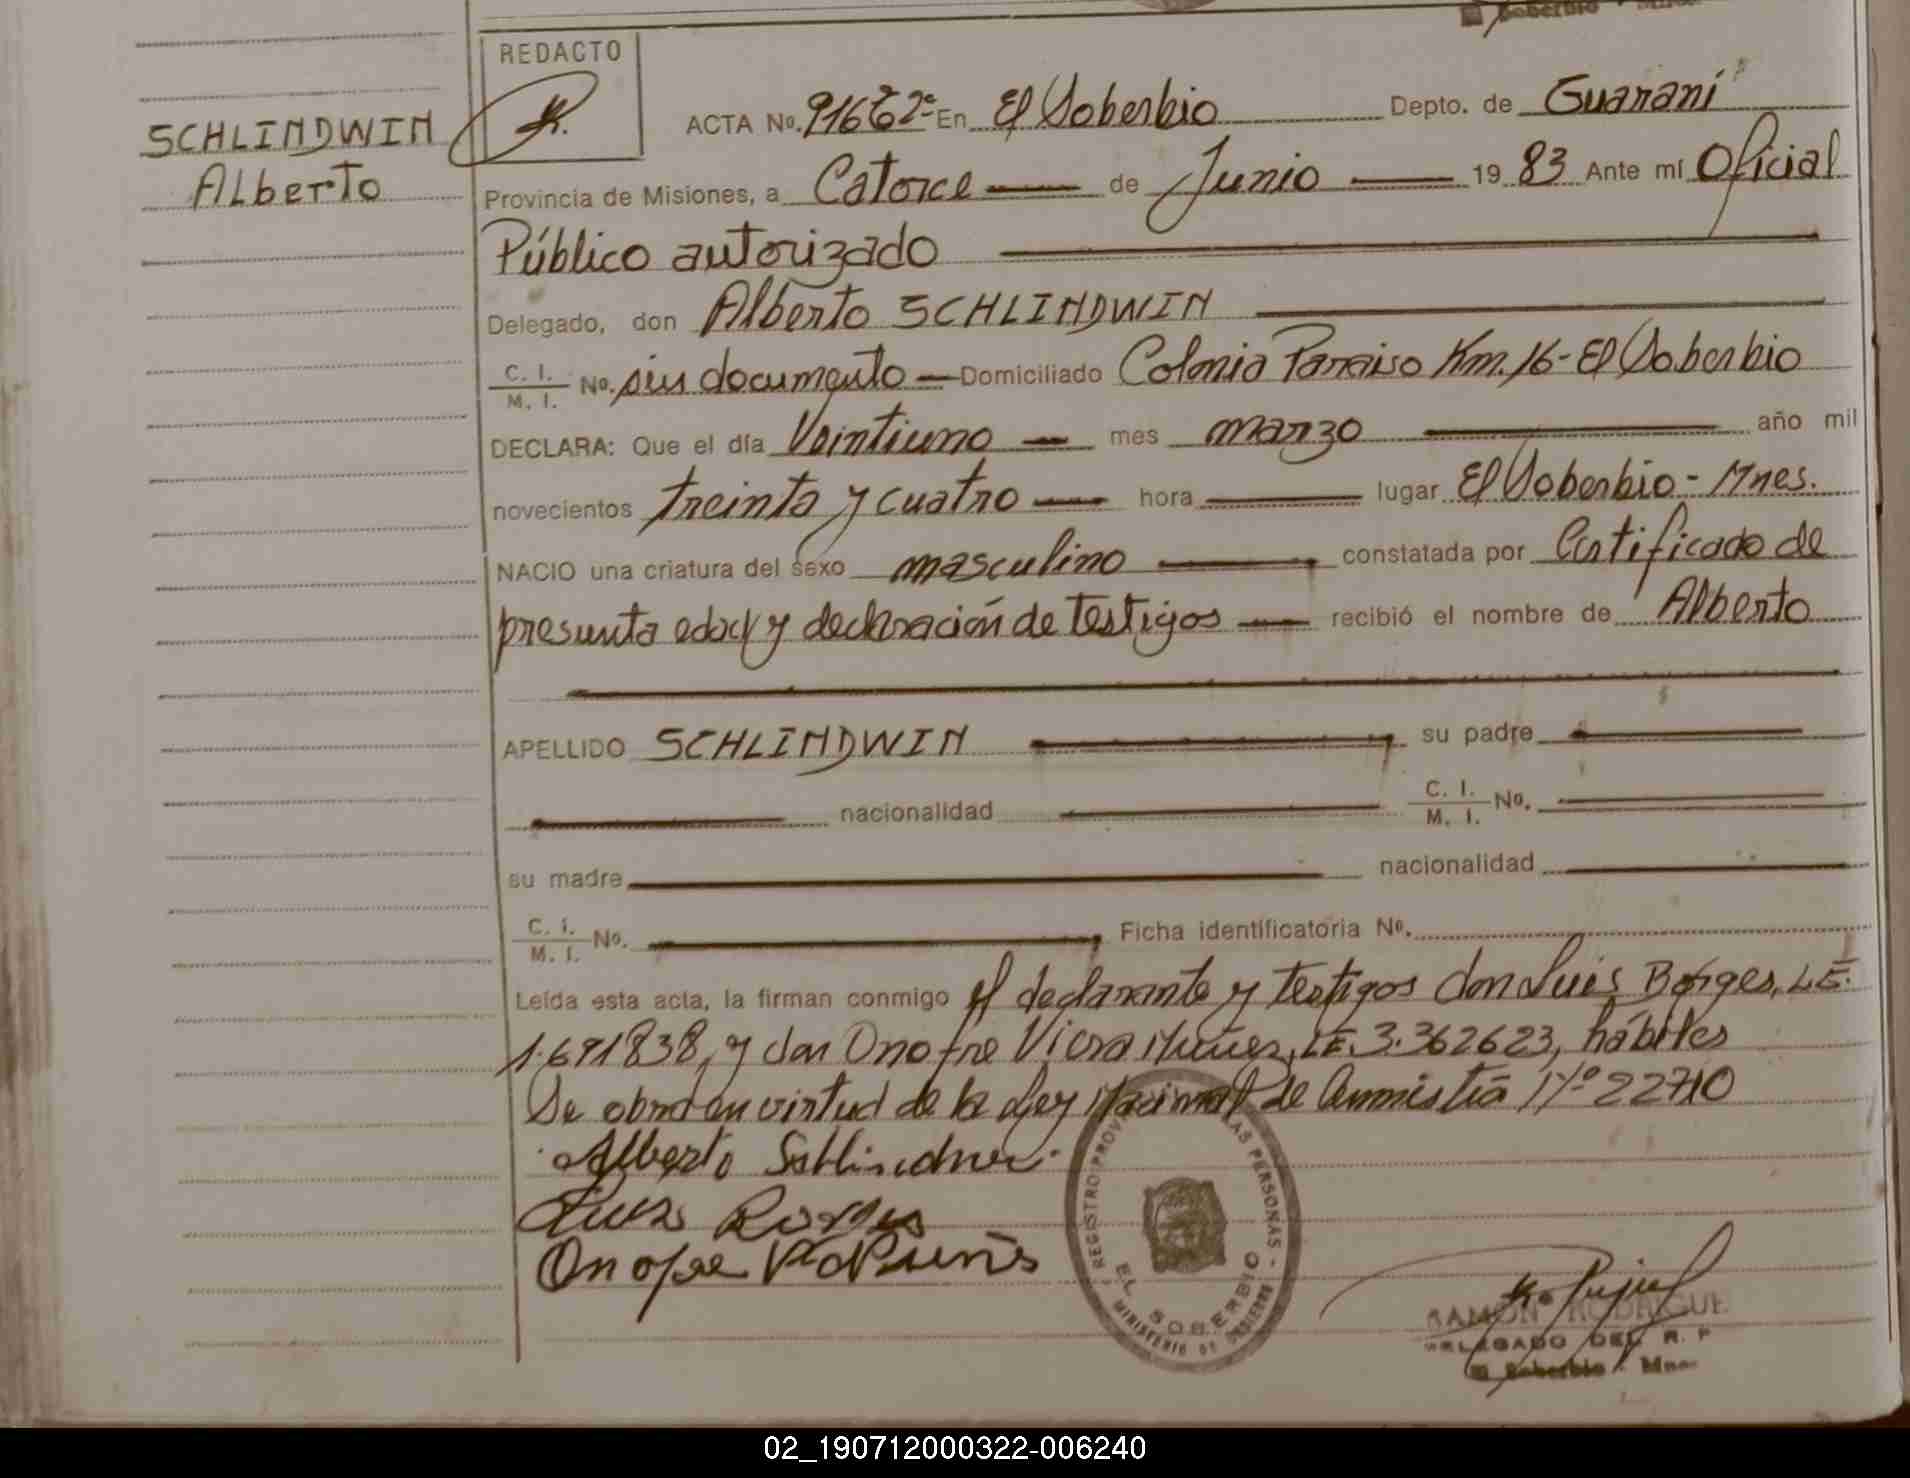 El Soberbio - Mnes.
REDACTO
SCHLINDWIN
Alberto
ACTA No. En El Soberbio Depto. de Guaraní
Provincia de Misiones, a Catorce de Junio 19 83 Ante mí Oficial
Público autorizado
Delegado, don Alberto SCHLINDWIN
C. I.
M. I. No. sin documento Domiciliado Colonia Paraiso Km. 16 - El Soberbio
DECLARA: Que el día Veintiuno mes marzo año mil
novecientos treinta y cuatro hora lugar El Soberbio - Mnes.
NACIO una criatura del sexo masculino constatada por Certificado de
presunta edad y declaración de testigos recibió el nombre de Alberto
APELLIDO SCHLINDWIN su padre
nacionalidad C. I.
M. I. No.
su madre nacionalidad
C. I.
M. I. No. Ficha identificatoria No.
Leída esta acta, la firman conmigo el declarante y testigos don Luis Borges, L.E.
1.691838, y don Onofre Viera Nuñez, LE. 3.362623, hábiles
Se obra en virtud de la Ley Nacional de Amnistía Nº 22710
Alberto
Luiz Borges
Onofre
REGISTRO PROV. LAS PERSONAS
EL SOBERBIO
MINISTERIO DE GOBIERNO
RAMON RODRIGUE
DELEGADO DEL R. P
El Soberbio - Mnes
02_190712000322-006240